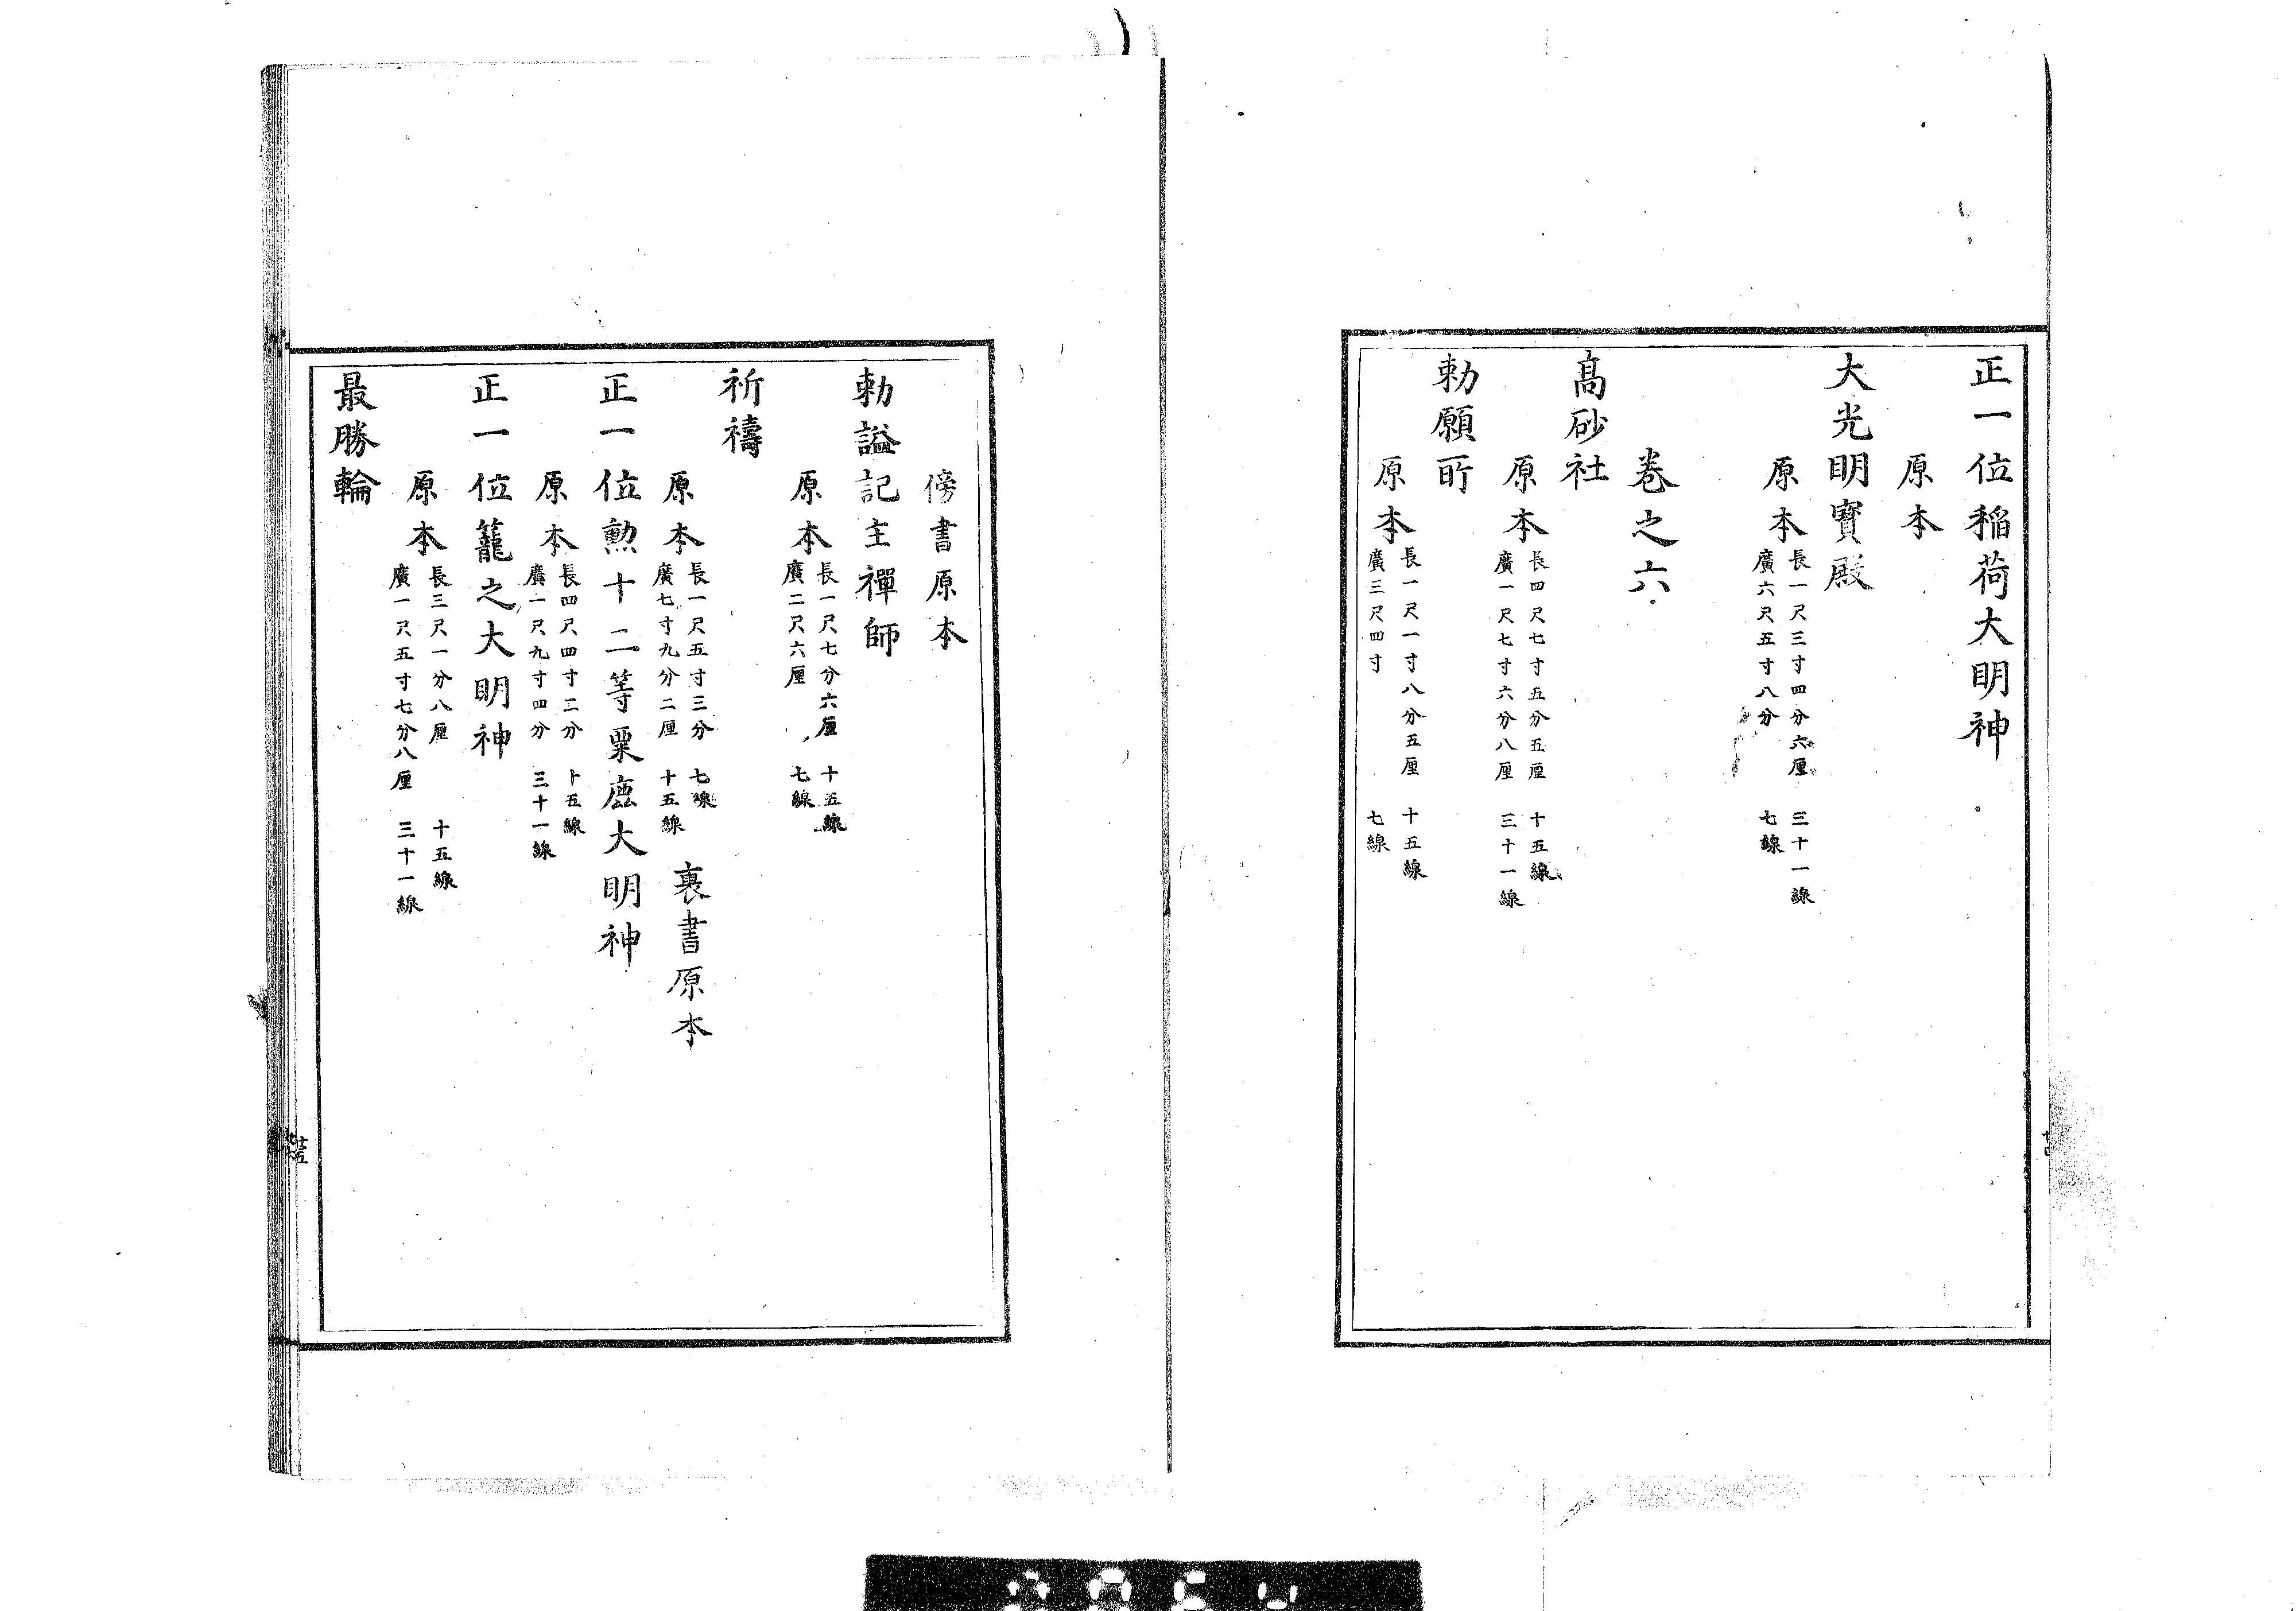 正一位稲荷大明神
原本
大光明寶殿
原本 長一尺三寸四分六厘 三十一線
廣六尺五寸八分 七線
巻之六
髙砂社
原本 長四尺七寸五分五厘 十五線
廣一尺七寸六分八厘 三十一線
勅願所
原本 長一尺一寸八分五厘 十五線
廣三尺四寸 七線
傍書原本
勅謚記主禪師
原本 長一尺七分六厘 十五線
廣二尺六厘 七線
祈禱
原本 長一尺五寸三分 七線
廣七寸九分二厘 十五線 裏書原本
正一位勲十二等粟鹿大明神
原本 長四尺四寸二分 十五線
廣一尺九寸四分 三十一線
正一位籠之大明神
原本 長三尺一分八厘 十五線
廣一尺五寸七分八厘 三十一線
最勝輪